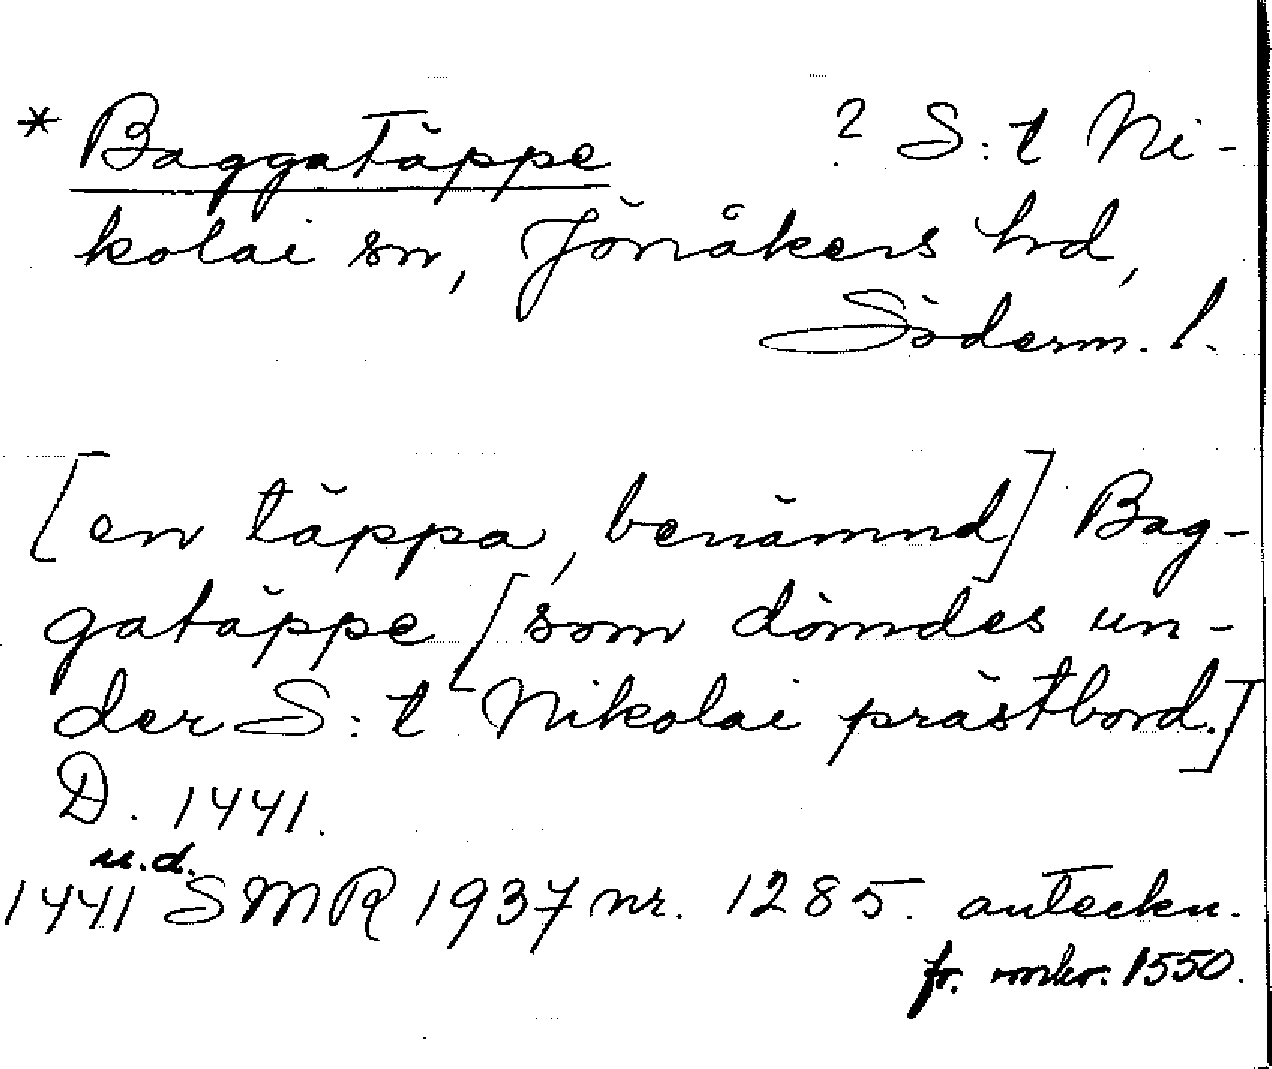 * Baggatäppe ? S:t Ni-
kolai sn, Jönåkers hd,
Söderm. l.
[en täppa, benämnd] Bag-
gatäppe [som dömdes un-
der S:t Nikolai prästbord.]
D. 1441.
u.d.
1441 SMR 1937 nr. 1285. anteckn.
fr. omkr. 1550.